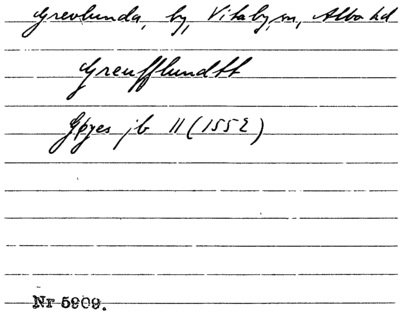 Grevlunda, by, Vitaby sn, Albo hd
Greufflundtt
Gøyes jb 11 (1552)
Nr 5909.